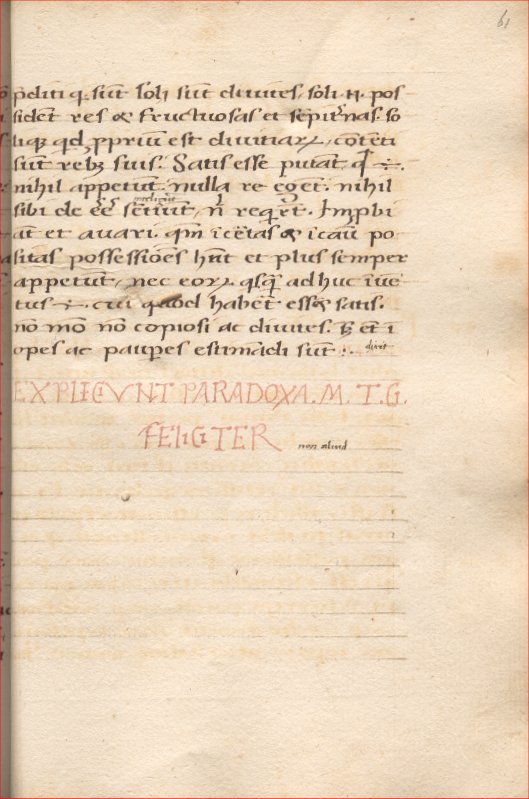 61
p̄diti q̨ sūt solị sūt diuites, soli .n̄. pos
sident res & fructuosas et sēpit̄nas. so
liqȝ qđ ꝓpriū est diuitiaꝝ, cōtēti
sūt rebȝ suis. Satis esse putāt qđ ÷.
nihil appetūt. nulla re egēt. nihil
sibi de eē̄ sētiūt, n̄ reqr̄ūt. Imp̱bi
āt et auari. qm̄ īcētas & īcaū po
sitas possessiōes hn̄t et plus semper
appetūt, nec eoꝝ. qsq̄ ad huc īuē
tus ÷. cui quod habēt ess& satis.
nō mō nō copiosi ac diuites. s̄ et ī
opes ac paup̱es estimādi sūt :.
EXPLICVNT PARADOXA. M. T. C.
FELICTER
non aliud